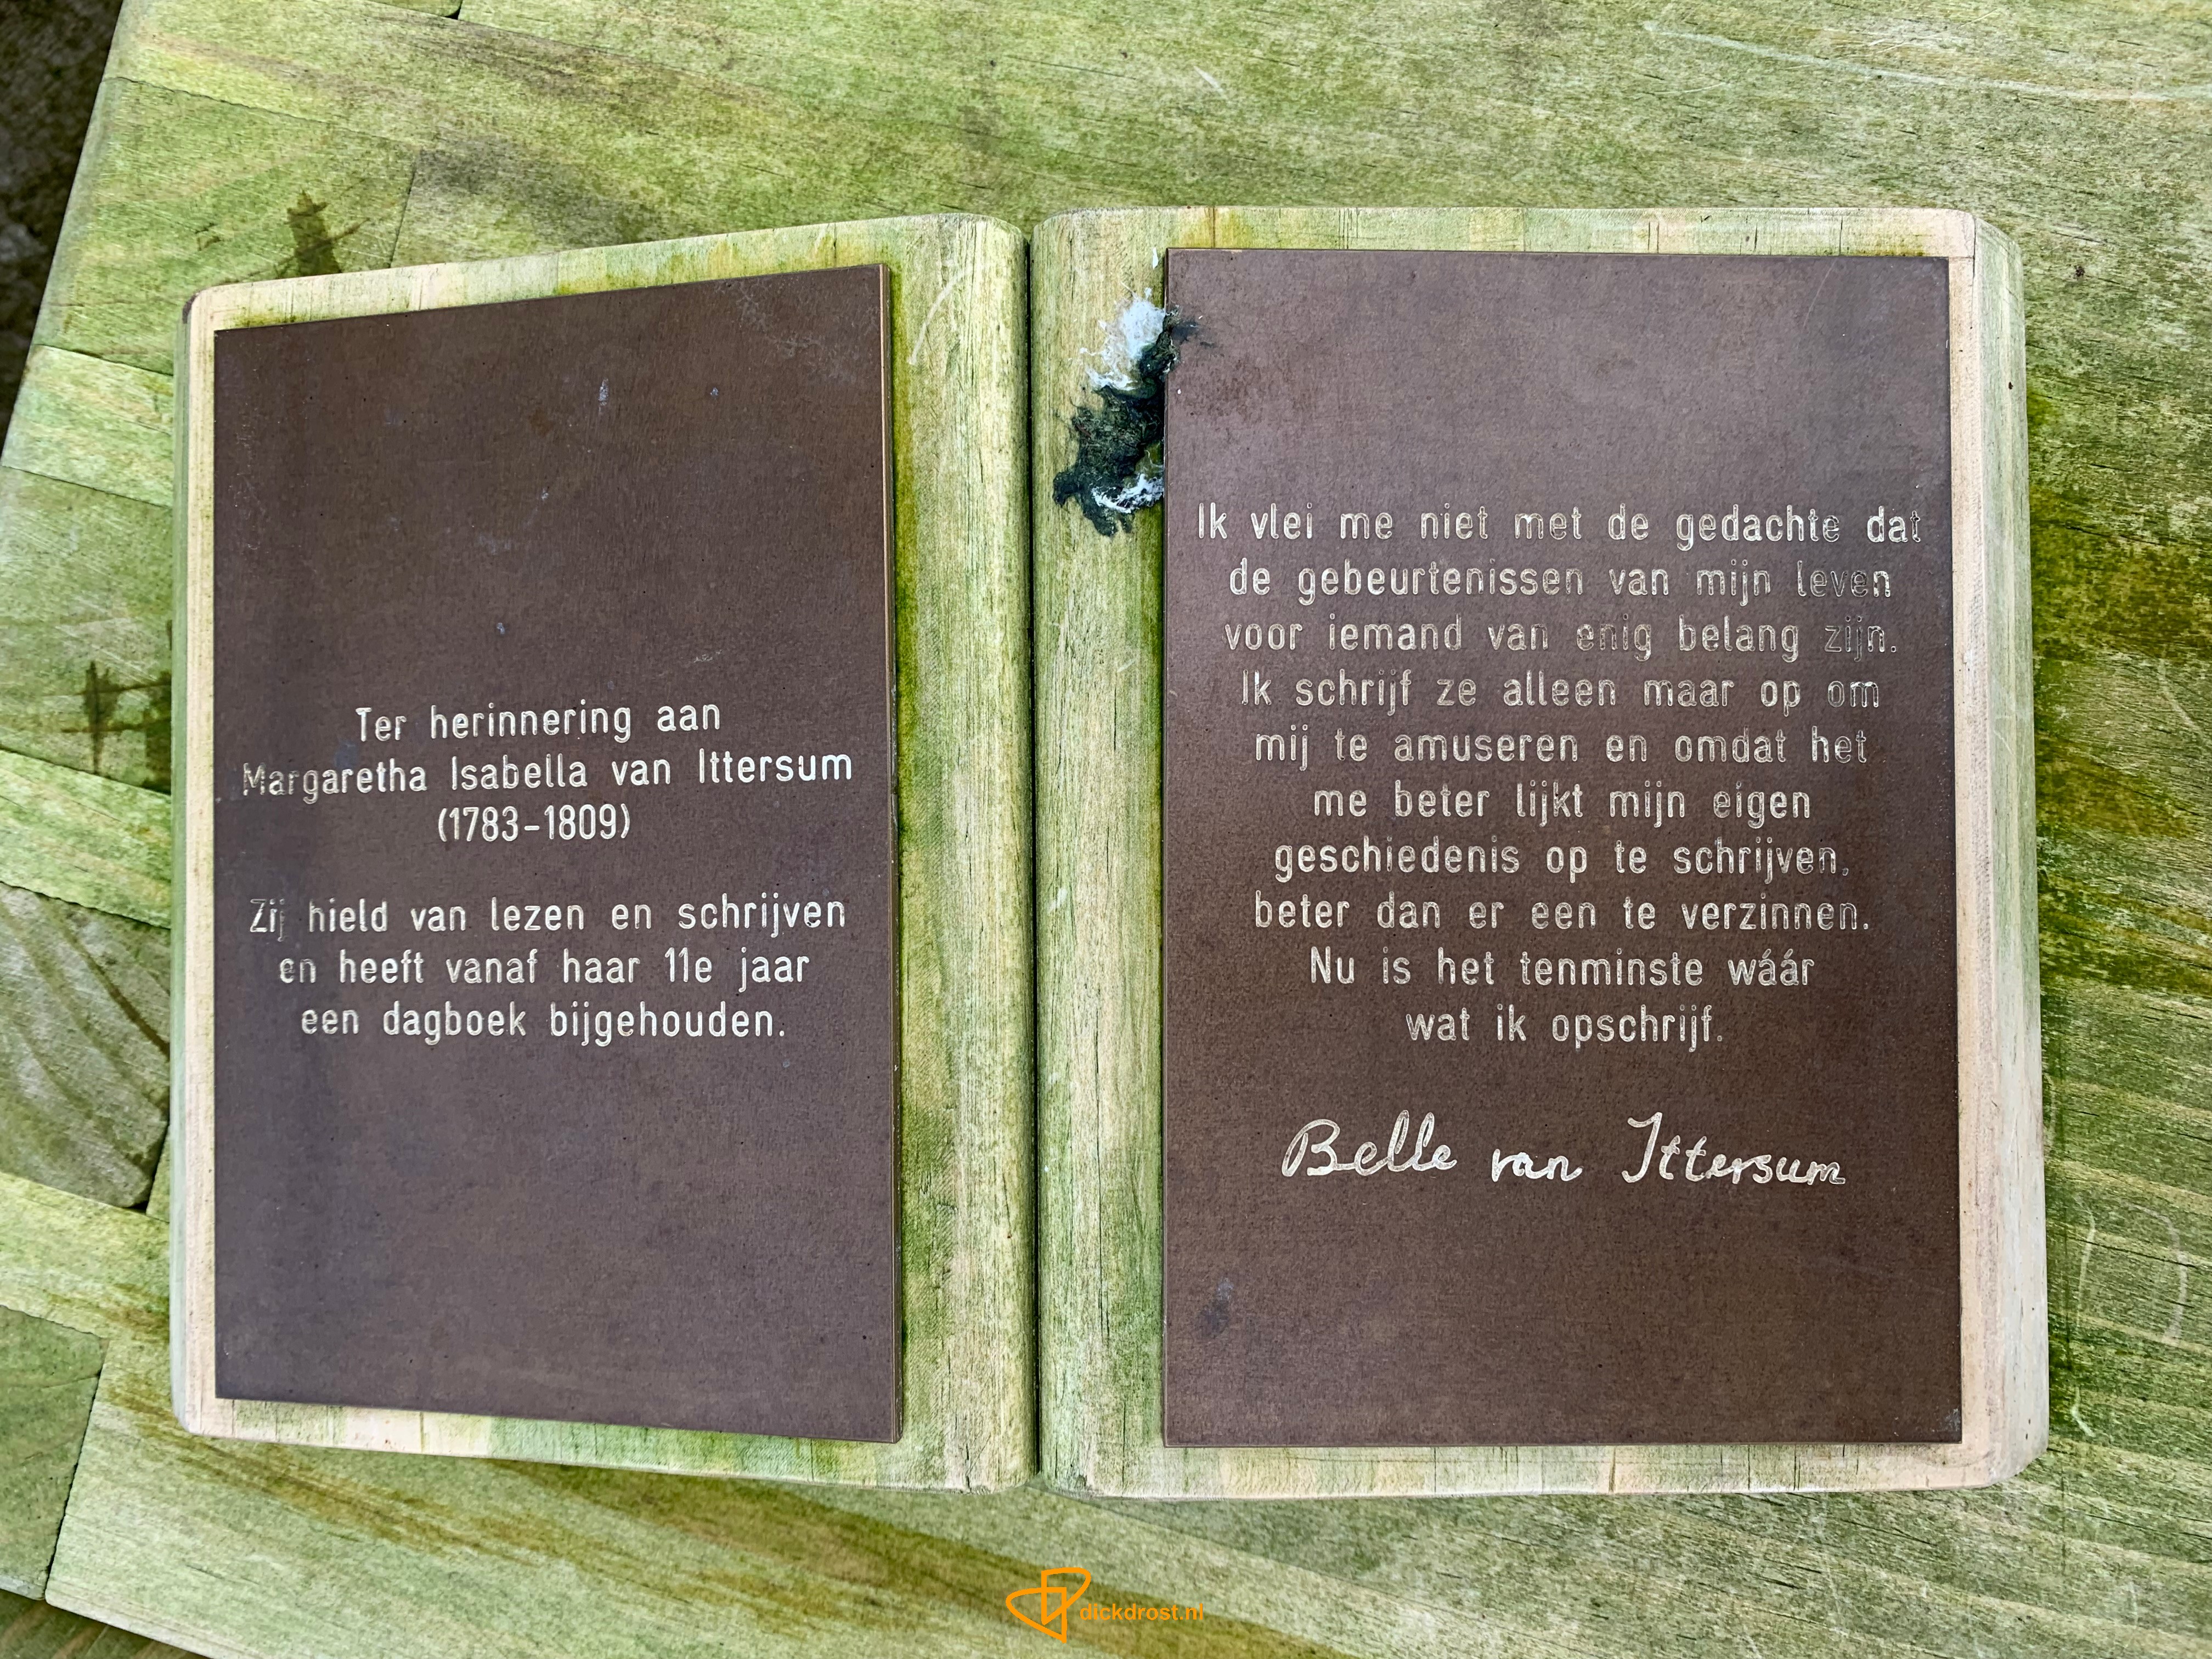 Ter herinnering aan
Margaretha Isabella van Ittersum
(1783-1809)
Zij hield van lezen en schrijven
en heeft vanaf haar 11e jaar
een dagboek bijgehouden.
Ik vlei me niet met de gedachte dat
de gebeurtenissen van mijn leven
voor iemand van enig belang zijn.
Ik schrijf ze alleen maar op om
mij te amuseren en omdat het
me beter lijkt mijn eigen
geschiedenis op te schrijven,
beter dan er een te verzinnen.
Nu is het tenminste wáár
wat ik opschrijf.
Belle van Ittersum
dickdrost.nl